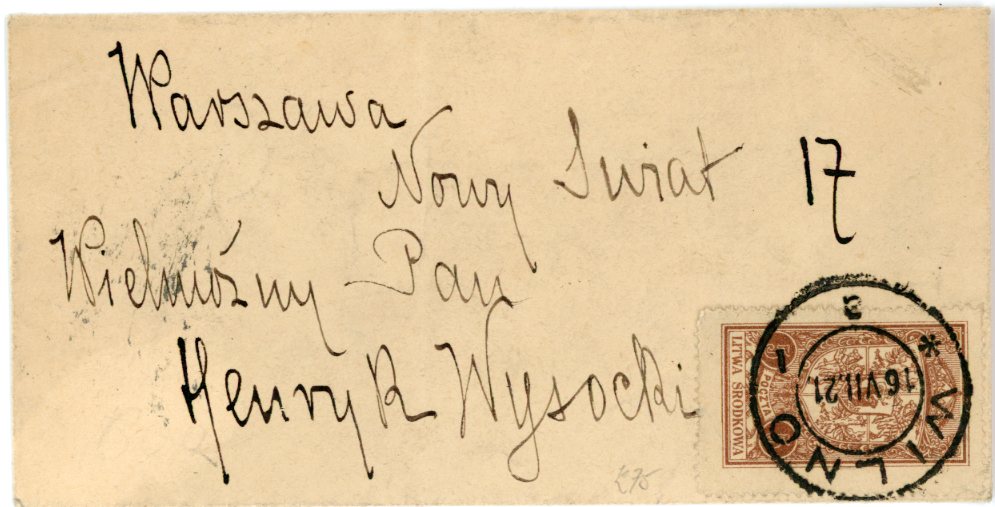 Warszawa
Nowy Swiat 17
Wielmożny Pan
Henryk Wysocki
LITWA ŚRODKOWA
POCZTA
WILNO 1
* 16 VII. 21. a